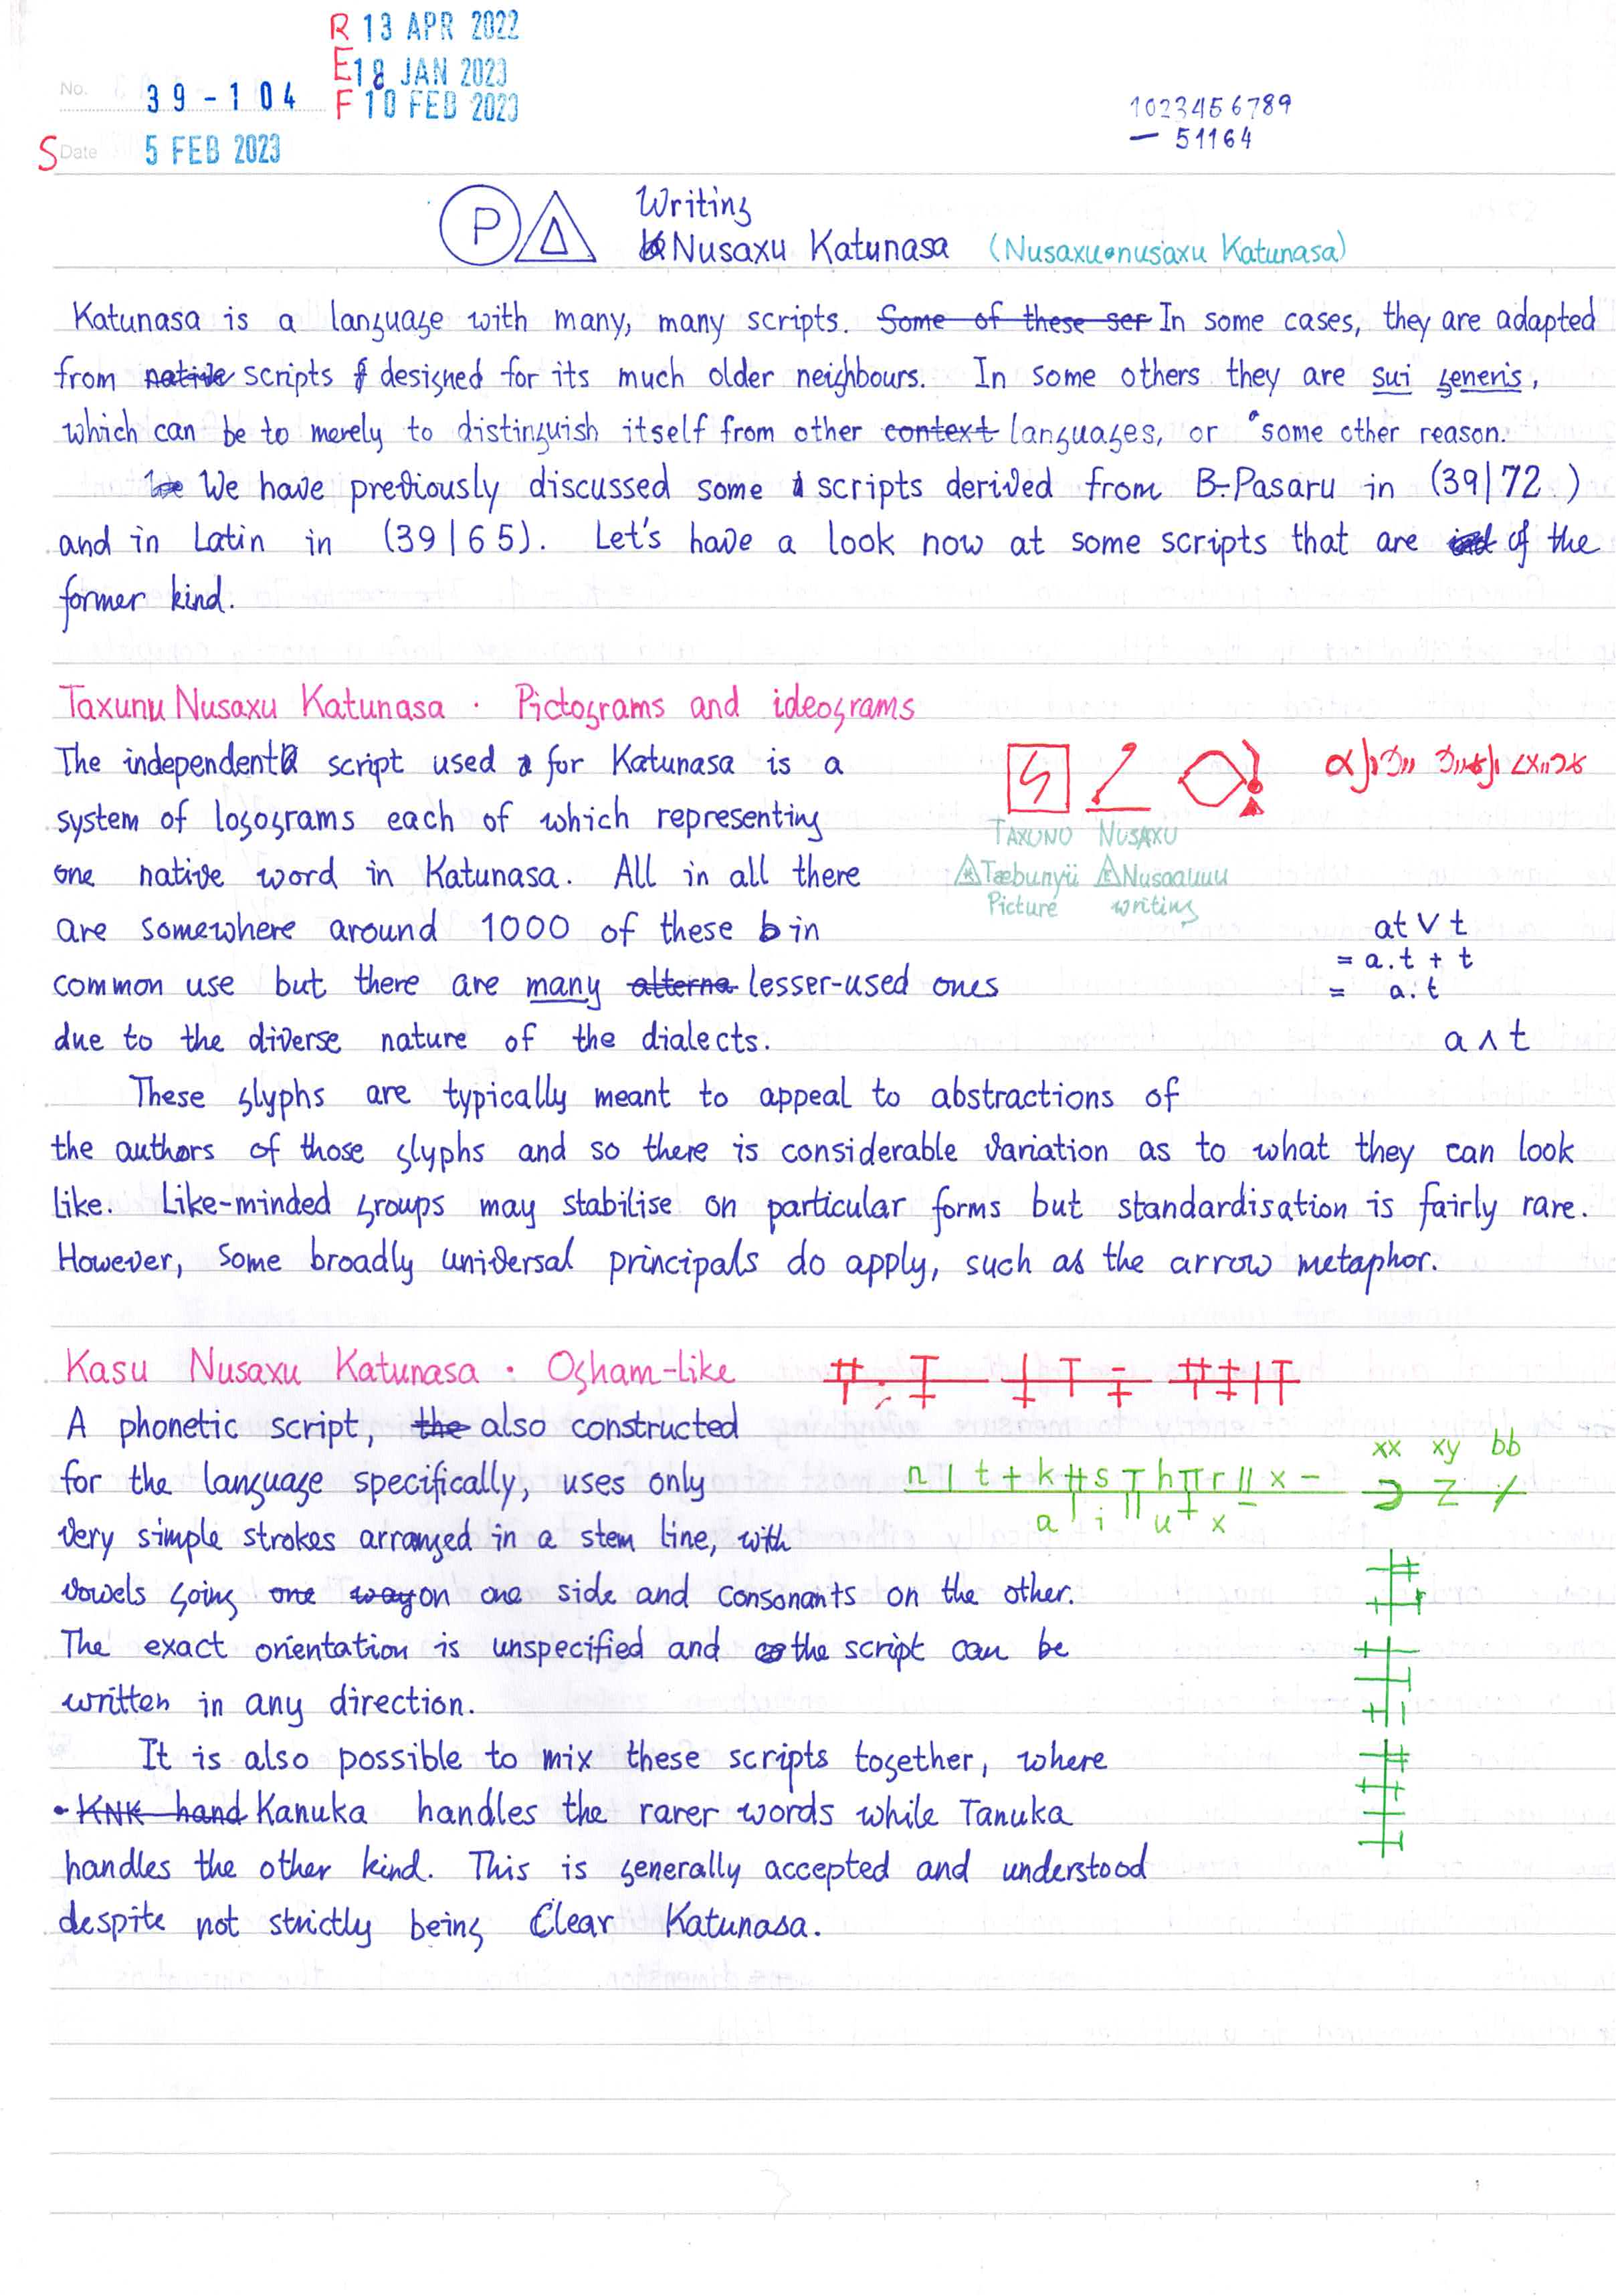 R 13 APR 2022
E 18 JAN 2023
No. 39-104 F 10 FEB 2023
S Date 5 FEB 2023
1023456789
— 51164
P Δ Writing
Nusaxu Katunasa (Nusaxu•nusaxu Katunasa)
Katunasa is a language with many, many scripts. Some of these ser In some cases, they are adapted
from native scripts designed for its much older neighbours. In some others they are sui generis,
which can be to merely to distinguish itself from other context languages, or some other reason.
We have previously discussed some scripts derived from B-Pasaru in (39|72)
and in Latin in (39|65). Let's have a look now at some scripts that are of the
former kind.
Taxunu Nusaxu Katunasa · Pictograms and ideograms
The independent script used for Katunasa is a
system of logograms each of which representing
one native word in Katunasa. All in all there
are somewhere around 1000 of these in
common use but there are many alterna lesser-used ones
due to the diverse nature of the dialects.
TAXUNU NUSAXU
Tæbunyü Nusaauuu
Picture writing
at ∨ t
= a.t + t
= a.t
a ∧ t
These glyphs are typically meant to appeal to abstractions of
the authors of those glyphs and so there is considerable variation as to what they can look
like. Like-minded groups may stabilise on particular forms but standardisation is fairly rare.
However, some broadly universal principals do apply, such as the arrow metaphor.
Kasu Nusaxu Katunasa · Ogham-like
A phonetic script, the also constructed
for the language specifically, uses only
very simple strokes arranged in a stem line, with
vowels going one way on one side and consonants on the other.
The exact orientation is unspecified and the script can be
written in any direction.
n t k s h r x
a i u x
xx xy bb
It is also possible to mix these scripts together, where
• KNK hand Kanuka handles the rarer words while Tanuka
handles the other kind. This is generally accepted and understood
despite not strictly being Clear Katunasa.